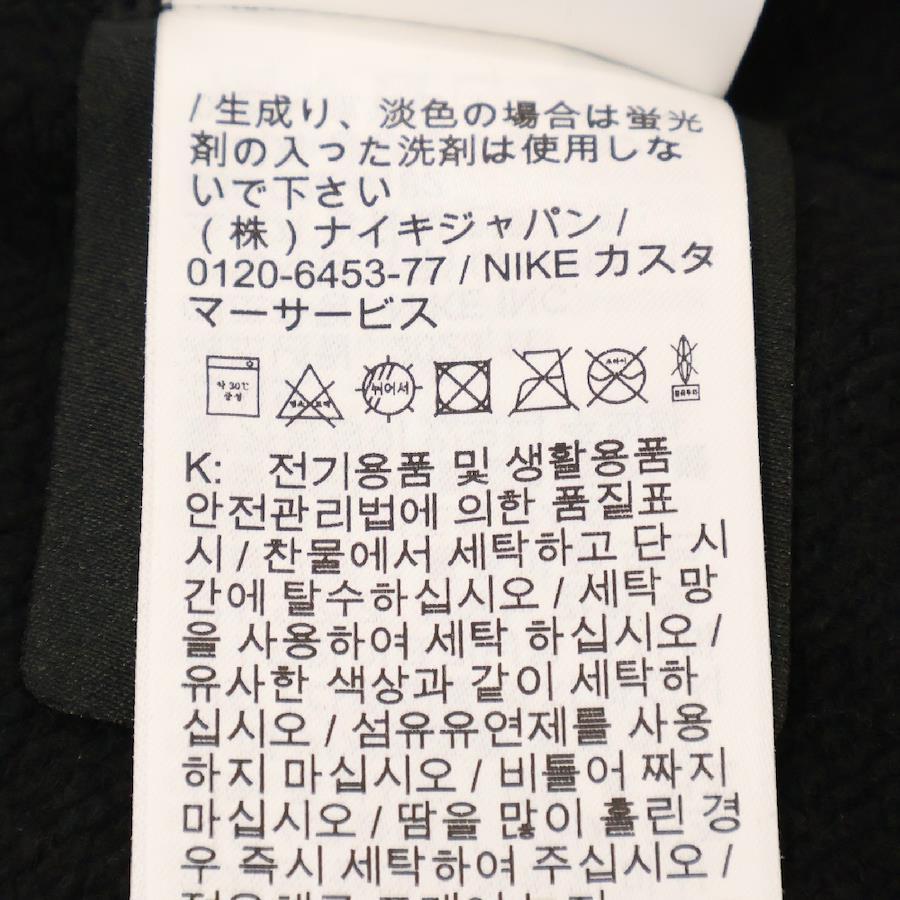 / 生成り、淡色の場合は蛍光
剤の入った洗剤は使用しな
いで下さい
( 株 ) ナイキジャパン /
0120-6453-77 / NIKE カスタ
マーサービス
약 30℃
중성
뉘어서
드라이
K: 전기용품 및 생활용품
안전관리법에 의한 품질표
시 / 찬물에서 세탁하고 단 시
간에 탈수하십시오 / 세탁 망
을 사용하여 세탁 하십시오 /
유사한 색상과 같이 세탁하
십시오 / 섬유유연제를 사용
하지 마십시오 / 비틀어 짜지
마십시오 / 땀을 많이 흘린 경
우 즉시 세탁하여 주십시오 /